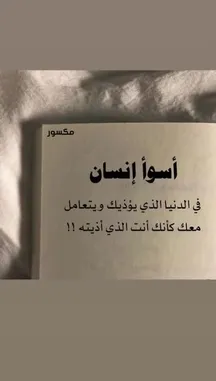 مكسور
أسوأ إنسان
في الدنيا الذي يؤذيك ويتعامل
معك كأنك أنت الذي أذيته !!